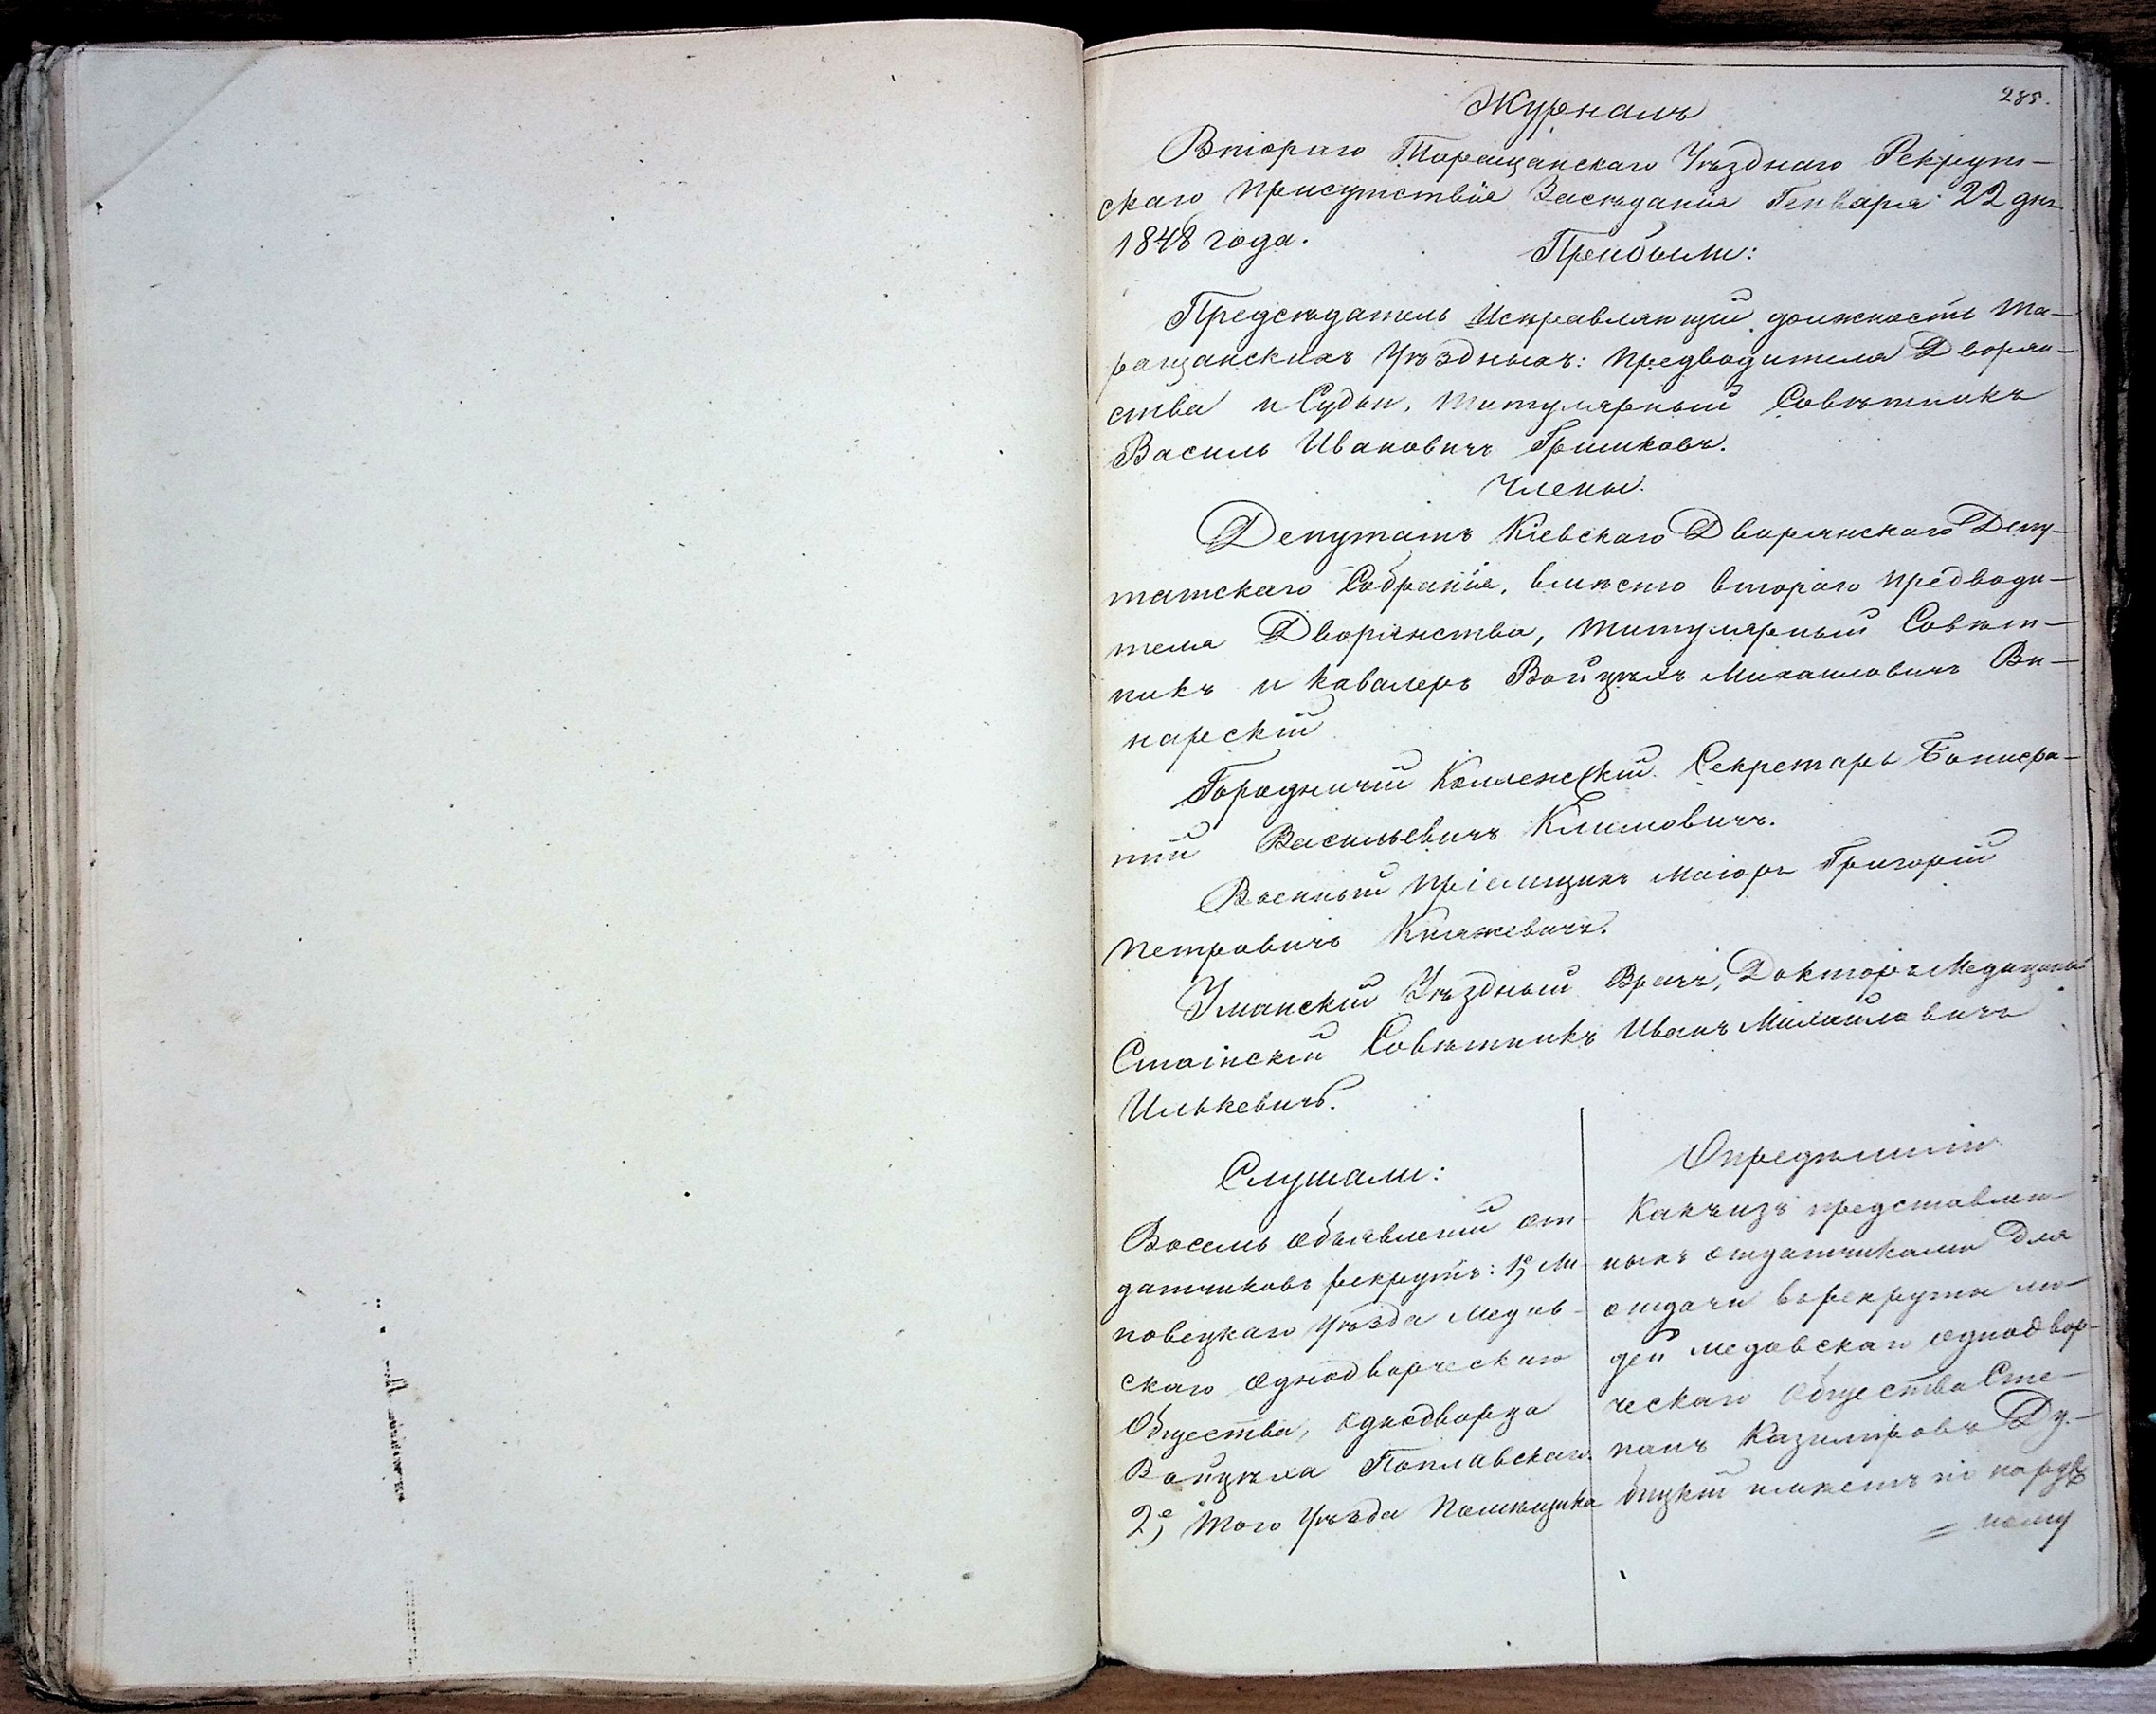 285.
Журналъ
Втораго Таращанскаго Уѣзднаго Рекрут-
скаго Присутствія Засѣданія Генваря 22 дня
1848 года.
Прибыли:
Предсѣдатель Исправляющій должность Та-
ращанскихъ Уѣздныхъ: Предводителя Дворян-
ства и Судьи, Титулярный Совѣтникъ
Василь Ивановичъ Гришковъ.
Члены.
Депутатъ Кіевскаго Дворянскаго Депу-
татскаго Собранія, вмѣсто втораго Предводи-
теля Дворянства, Титулярный Совѣт-
никъ и Кавалеръ Войцѣхъ Михайловичъ Ви-
нарскій
Городничій Коллежскій Секретарь Бонифа-
тій Васильевичъ Климовичъ.
Военный Пріемщикъ Маіоръ Григорій
Петровичъ Княжевичъ.
Уманскій Уѣздный Врачъ, Докторъ Медицины
Статскій Совѣтникъ Иванъ Михайловичъ
Илькевичъ.
Слушали:
Восемь объявленій от-
датчиковъ рекрутъ: 1е, Ли-
повецкаго Уѣзда Медов-
скаго Однодворческаго
Общества, Однодворца
Войцѣха Поплавскаго.
2е, Того Уѣзда Помѣщика
Опредѣлили
Какъ изъ представлен-
ныхъ отдатчиками для
отдачи въ рекруты лю-
дей Медовскаго Однодвор-
ческаго Общества Сте-
панъ Казиміровъ Ду-
бицкій имѣетъ по наруж
= ному